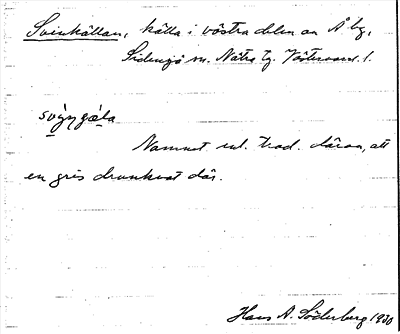 Svinkällan, källa i västra delen av Å by,
Sidensjö sn. Nätra tg. Västernorrl. l.
svi̬ŋgæ̀la
Namnet enl. trad. därav, att
en gris drunknat där.
Hans A. Söderberg 1930